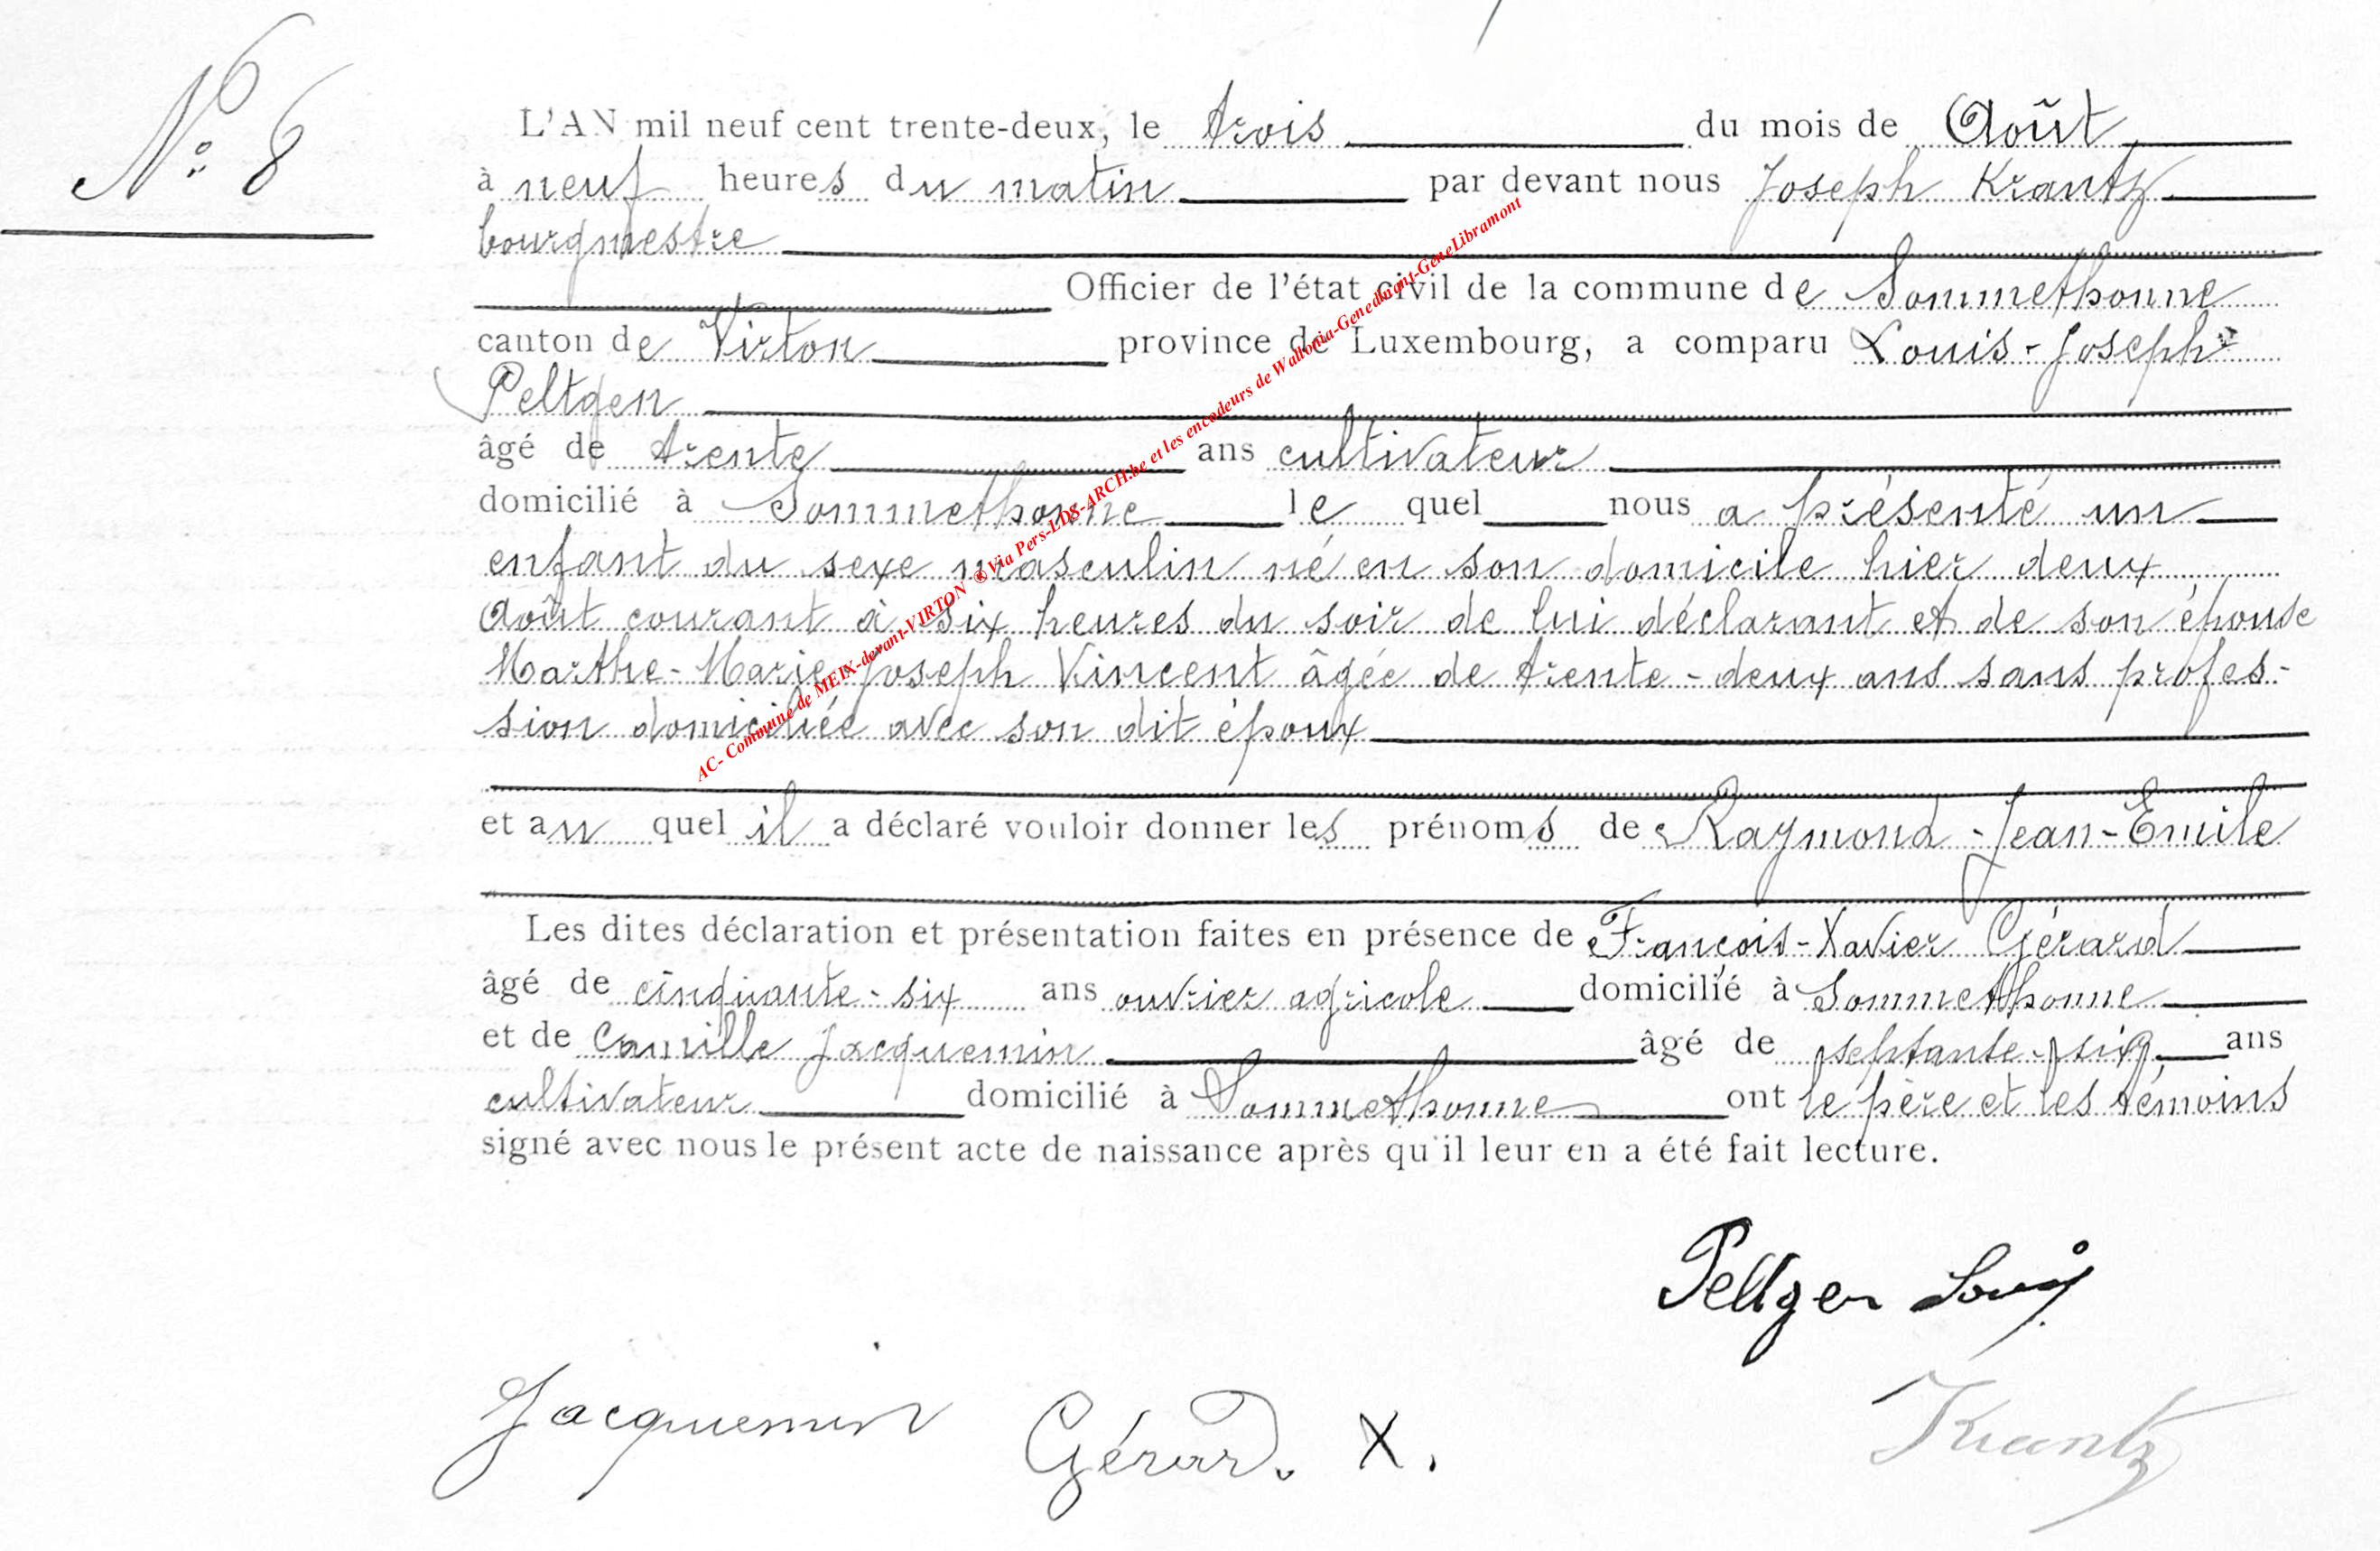 N° 8
L'AN mil neuf cent trente-deux, le trois du mois de Août
à neuf heures du matin par devant nous Joseph Krantz
bourgmestre
Officier de l'état civil de la commune de Sommethonne
canton de Virton province de Luxembourg, a comparu Louis-Joseph
Peltgen
âgé de trente ans cultivateur
domicilié à Sommethonne le quel nous a présenté un
enfant du sexe masculin né en son domicile hier deux
Août courant à six heures du soir de lui déclarant et de son épouse
Marthe-Marie-Joseph Vincent âgée de trente-deux ans sans profes-
sion domiciliée avec son dit époux
et au quel il a déclaré vouloir donner les prénoms de Raymond-Jean-Emile
Les dites déclaration et présentation faites en présence de François-Xavier Gérard
âgé de cinquante-six ans ouvrier agricole domicilié à Sommethonne
et de Camille Jacquemin âgé de septante-six ans
cultivateur domicilié à Sommethonne ont le père et les témoins
signé avec nous le présent acte de naissance après qu'il leur en a été fait lecture.
Peltgen Louis
Jacquemin Gérard. X. Krantz
AC- Commune de MEIX-devant-VIRTON ® Via Pers-LDS-ARCH.be et les encodeurs de Wallonia-Genedinant-GeneLibramont